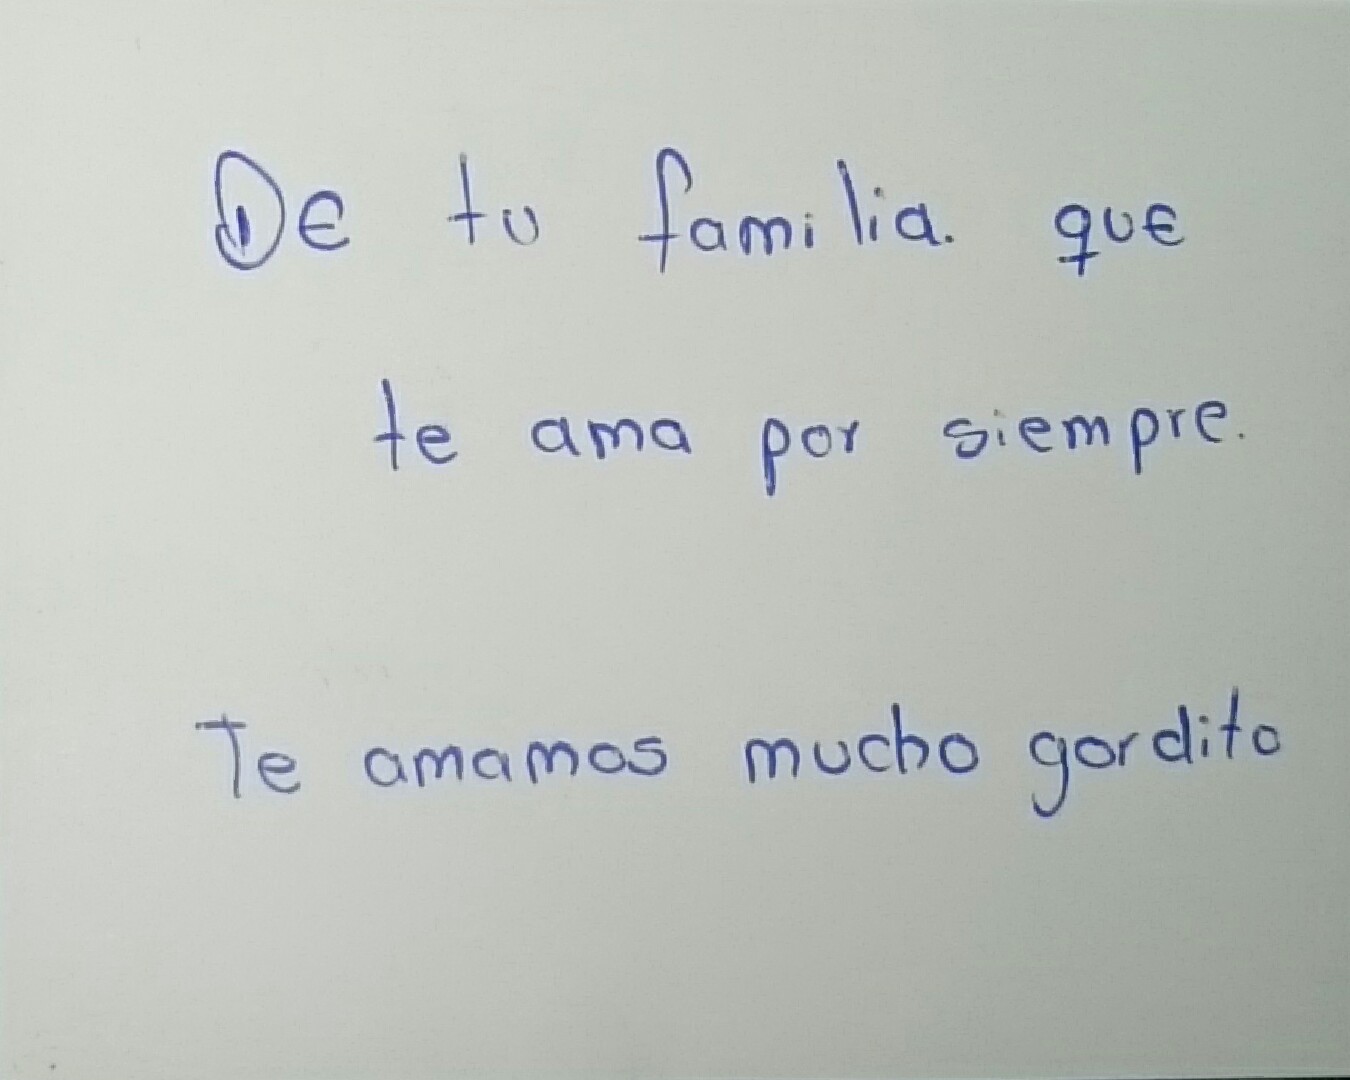 De tu familia. que
te ama por siempre.
Te amamos mucho gordito